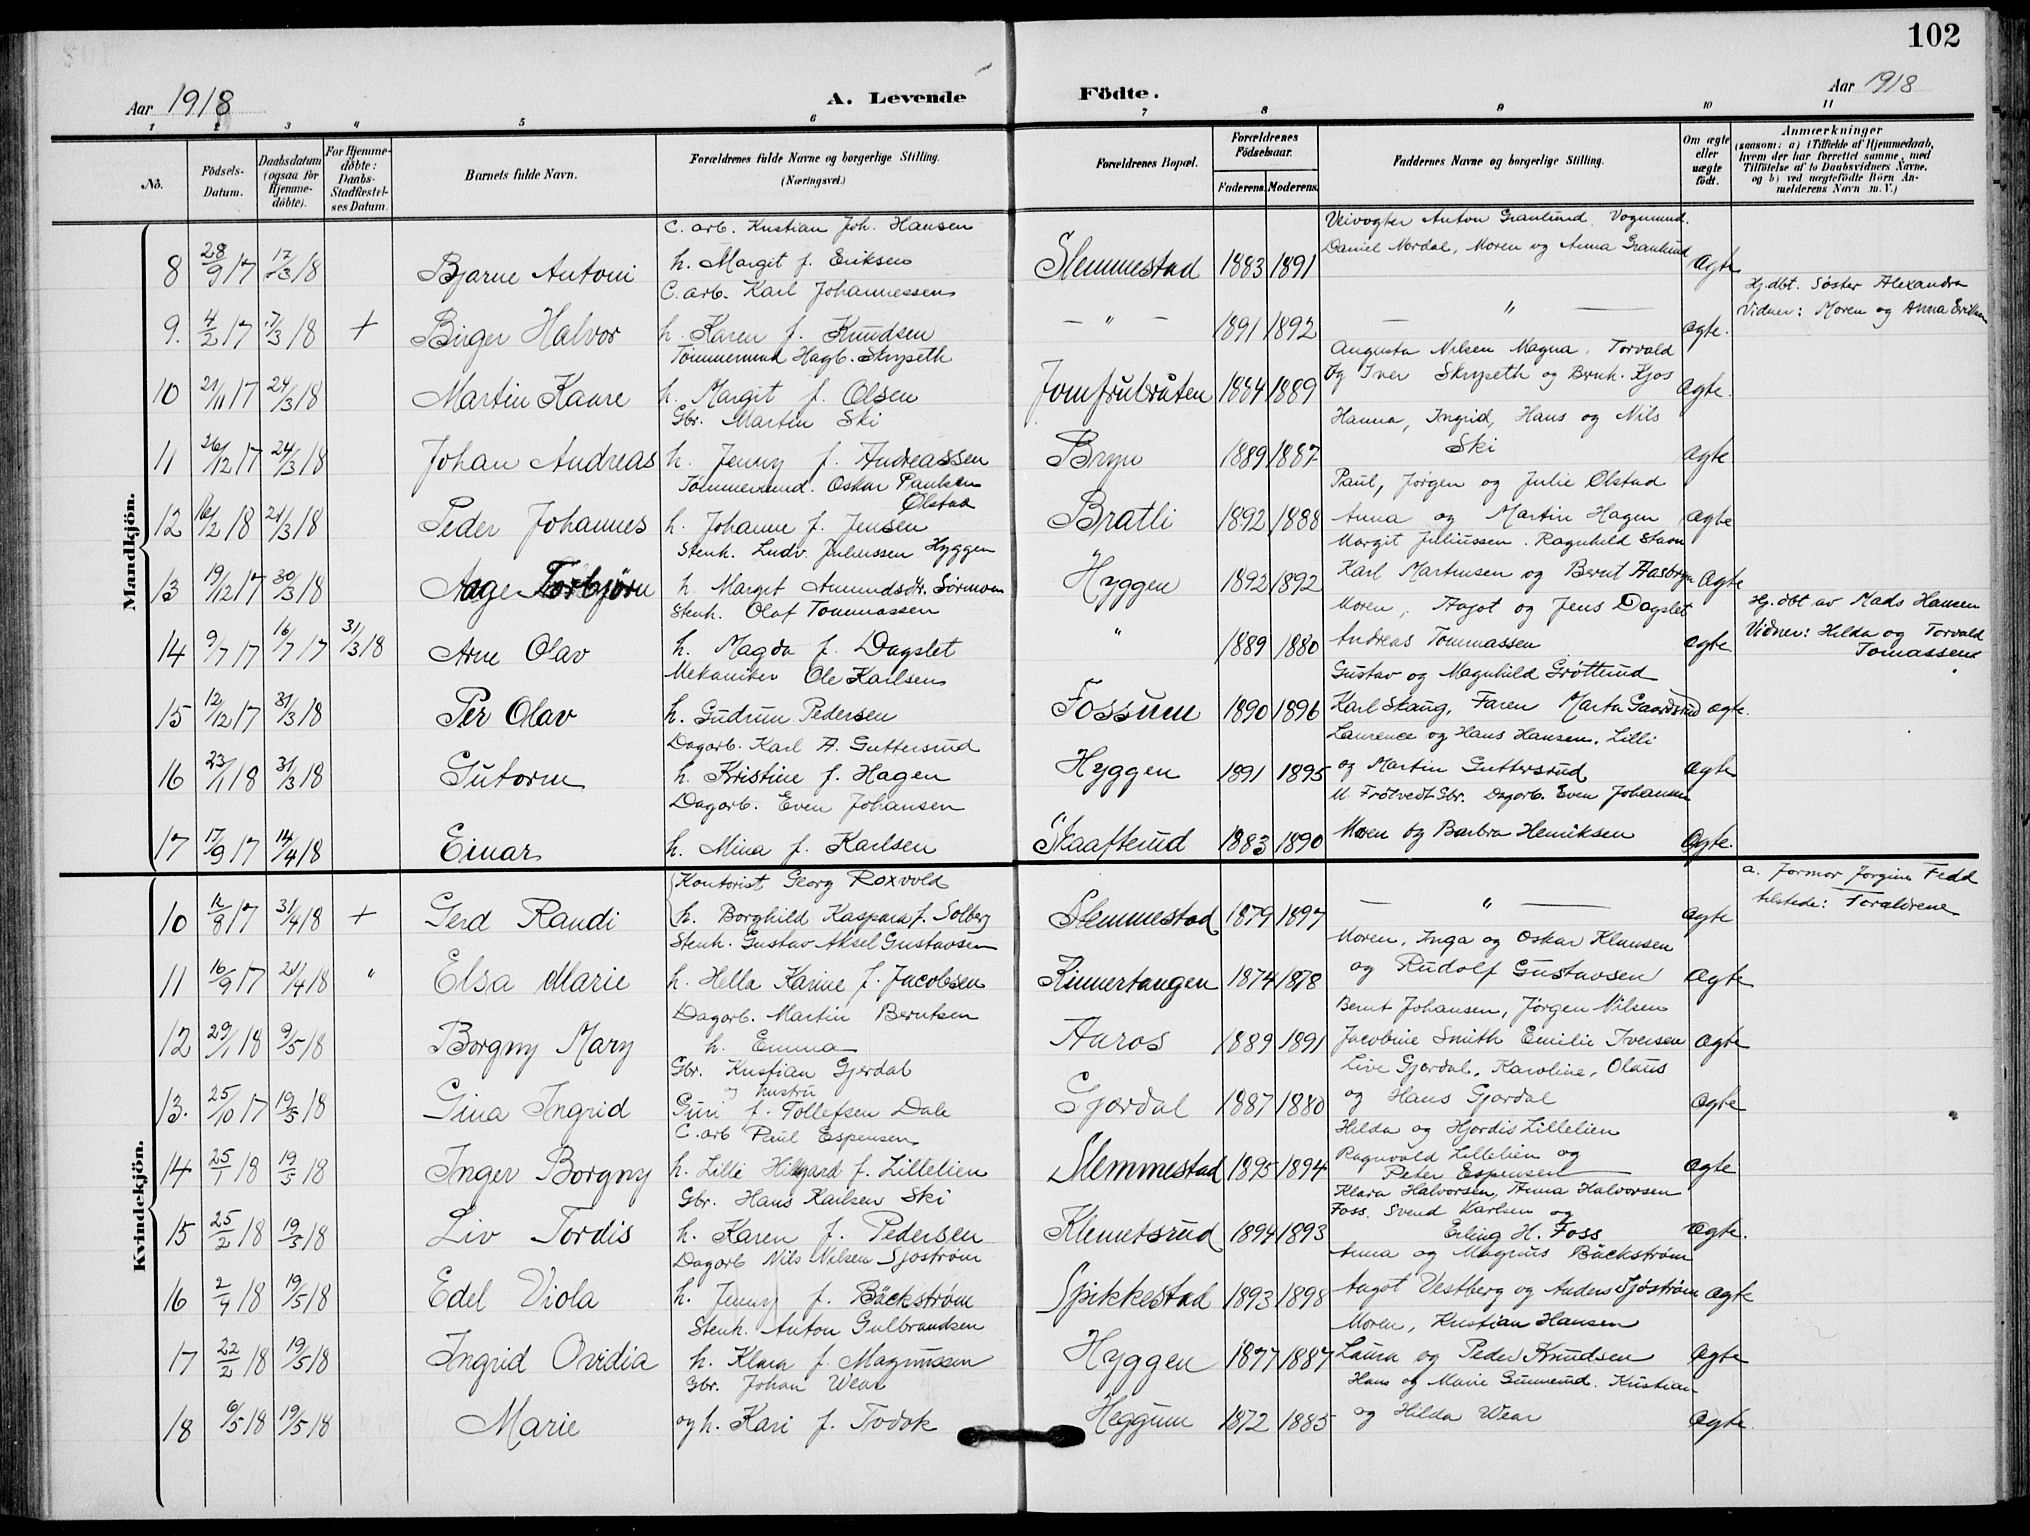 102
Aar 1918
A. Levende Födte.
Aar 1918
1 2 3 4 5 6 7 8 9 10 11
No.
Födsels-Datum.
Daabsdatum (ogsaa for Hjemme-döbte).
For Hjemme-döbte: Daabs-Stadfæstel-ses Datum.
Barnets fulde Navn.
Forældrenes fulde Navne og borgerlige Stilling.
(Næringsvei.)
Forældrenes Bopæl.
Forældrenes Födselsaar.
Faderens. Moderens.
Faddernes Navne og borgerlige Stilling.
Om ægte eller uægte født.
Anmærkninger
(saasom: a) i Tilfælde af Hjemmedaab, hvem der har forrettet samme, med Tilföielse af to Daabsvidners Navne, og b) ved uægtefödte Börn An-melderens Navn m. V.)
Mandkjön.
C. arb. Kristian Joh. Hansen Veivogter Anton Granlund. Vognmand.
8 28/9 17 17/3 18 Bjarne Antoni h. Margit f. Eriksen Slemmestad 1883 1891 Daniel Nordal, Moren og Anna Granlund ægte
C. arb. Karl Johannessen Hj.dbt. Søster Alexandra
9. 4/2 17 17/3 18 + Birger Halvor h. Karen f. Knudsen — " — 1891 1892 — " — ægte. Vidner: Moren og Anna Eriksen
Tømmermand Hagb. Skryseth Augusta Nilsen Magna. Torvald
10 21/11 17 24/3 18 Martin Kaare h. Margit f. Olsen Jomfrubråten 1884 1889 og Iver Skryseth og Bernh. Kjos ægte.
Gbr. Martin Ski Hanna, Ingrid, Hans og Nils
11 26/12 17 24/3 18 Johan Andreas h. Jenny f. Andreassen Bryn 1889 1887 Ski ægte
Tømmermand. Oskar Paulsen Ølstad Paul, Jørgen og Julie Ølstad
12 16/2 18 21/3 18 Peder Johannes h. Johanne f. Jensen Bratli 1892 1888 Anna og Martin Hagen ægte
Stenh. Ludv. Juliussen Hyggen Margit Juliussen. Ragnhild
13 19/12 17 30/3 18 Aage Torbjörn h. Margit Amundsdtr. Sørmoen Hyggen 1892 1892 Karl Martinsen og Bernt Aasbryn Ægte
Stenh. Olaf Tommassen Moren, Aagot og Jens Dagslet Hj.dbt av Mads Hansen
14 9/7 17 16/7 17 31/3 18 Arne Olav h. Magda f. Dagslet " 1889 1880 Andreas Tommassen ægte Vidner: Hilda og Torvald Tomassen
Mekaniker Ole Karlsen Gustav og Magnhild Grøtterud
15 12/12 17 31/3 18 Per Olav h. Gudrun Pedersen Fossum 1890 1896 Karl Skaug, Faren Marta Gaardsrud ægte.
Dagarb. Karl A. Guttersrud Laurence og Hans Hansen. Lilli
16 23/1 18 31/3 18 Gutorm h. Kristine f. Hagen Hyggen 1891 1895 og Martin Guttersrud ægte
Dagarb. Even Johansen M. Frötvedt Gbr. Dagarb. Even Johansen
17 17/9 17 14/4 18 Einar h. Mina f. Karlsen Skaafterud 1883 1890 Moren og Barbra Henriksen Ægte.
Kvindekjön.
Kontorist Georg Roxvold a. Jormor Jorgine Fedd
10 12/8 17 31/4 18 + Gerd Randi h. Borghild Kaspara f. Solberg Slemmestad 1879 1897 — " — ægte tilstede: Forældrene
Stenh. Gustav Aksel Gustavsen Moren, Inga og Oskar Klausen
11 16/9 17 21/4 18 " Elsa Marie h. Hella Karine f. Jacobsen Kinnertangen 1874 1878 og Rudolf Gustavsen ægte
Dagarb. Martin Berntsen Bernt Johansen, Jørgen Nilsen
12 29/1 18 9/5 18 Borgny Mary h. Emma Aaros 1889 1891 Jacobine Smith Emilie Iversen ægte
Gbr. Kristian Gjerdal Live Gjerdal, Karoline, Olaus
og hustru
13. 25/10 17 19/5 18 Gina Ingrid Guri f. Tollefsen Dale Gjerdal 1887 1880 og Hans Gjerdal ægte
C. arb Paul Espensen Hilda og Hjordis Lillelien
14 25/1 18 19/5 18 Inger Borgny h. Lilli Hildgard f. Lillelien Slemmestad 1895 1894 Ragnvald Lillelien og Peter Espensen ægte
Gbr. Hans Karlsen Ski Klara Halvorsen, Anna Halvorsen
15 25/2 18 19/5 18 Liv Tordis h. Karen f. Pedersen Klemetsrud 1894 1893 Foss. Svend Karlsen og Erling H. Foss ægte.
Dagarb Nils Nilsen Sjostrøm Anna og Magnus Bäckstrøm
16 2/4 18 19/5 18 Edel Viola h. Jenny f. Bäckstrøm Spikkestad 1893 1898 Aagot Vestberg og Anders Sjöstrøm ægte
Stenh. Anton Gulbrandsen Moren, Kristian Hansen
17 22/2 18 19/5 18 Ingrid Ovidia h. Klara f. Magnussen Hyggen 1877 1887 Laura og Peder Knudsen ægte
Gbr. Johan Wear Hans og Marie Gunnerud. Kristian
18 6/5 18 19/5 18 Marie og h. Kari f. Tvdok Heggum 1872 1885 og Hilda Wear ægte.